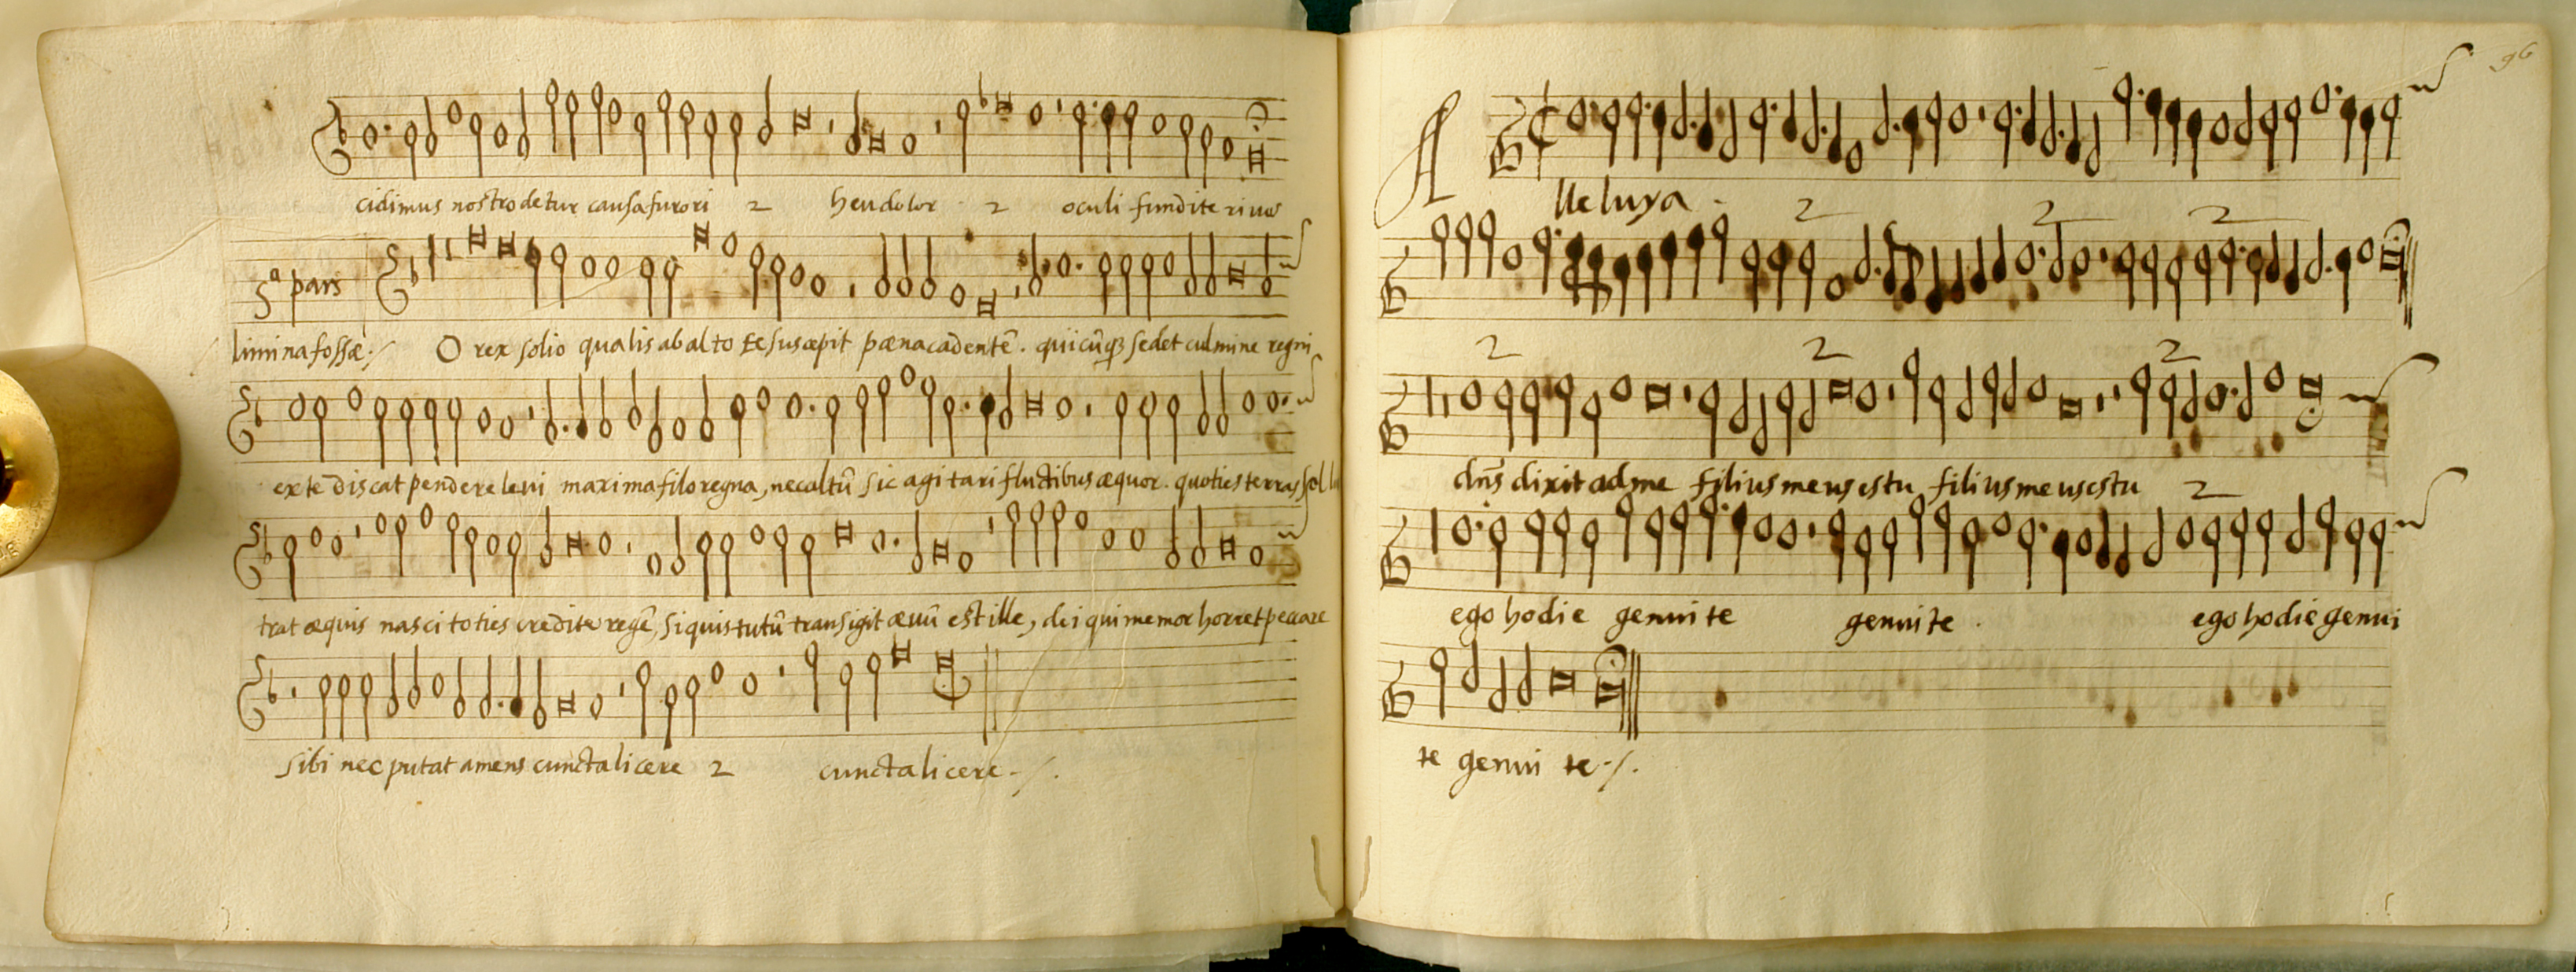 cidimus nostro detur causa furori 2 heu dolor 2 oculi fundite rivos
5ª pars
limina fossæ. O rex solio qualis ab alto te suscæpit pæna cadentẽ. quicũq3 sedet culmine regni
ex te discat pendere levi maxima filo regna, nec altũ sic agitari fluctibus æquor. quoties terras sol
trat æquis nasci toties credite regẽ, si quis tutũ transigit ævũ est ille, dei qui memor horret peccare
sibi nec putat amens cuncta licere 2 cuncta licere
96
Alleluya
2 2 2
2 2 2
dñs dixit ad me filius meus es tu filius meus es tu 2
ego hodie genui te genui te ego hodie genui
te genui te